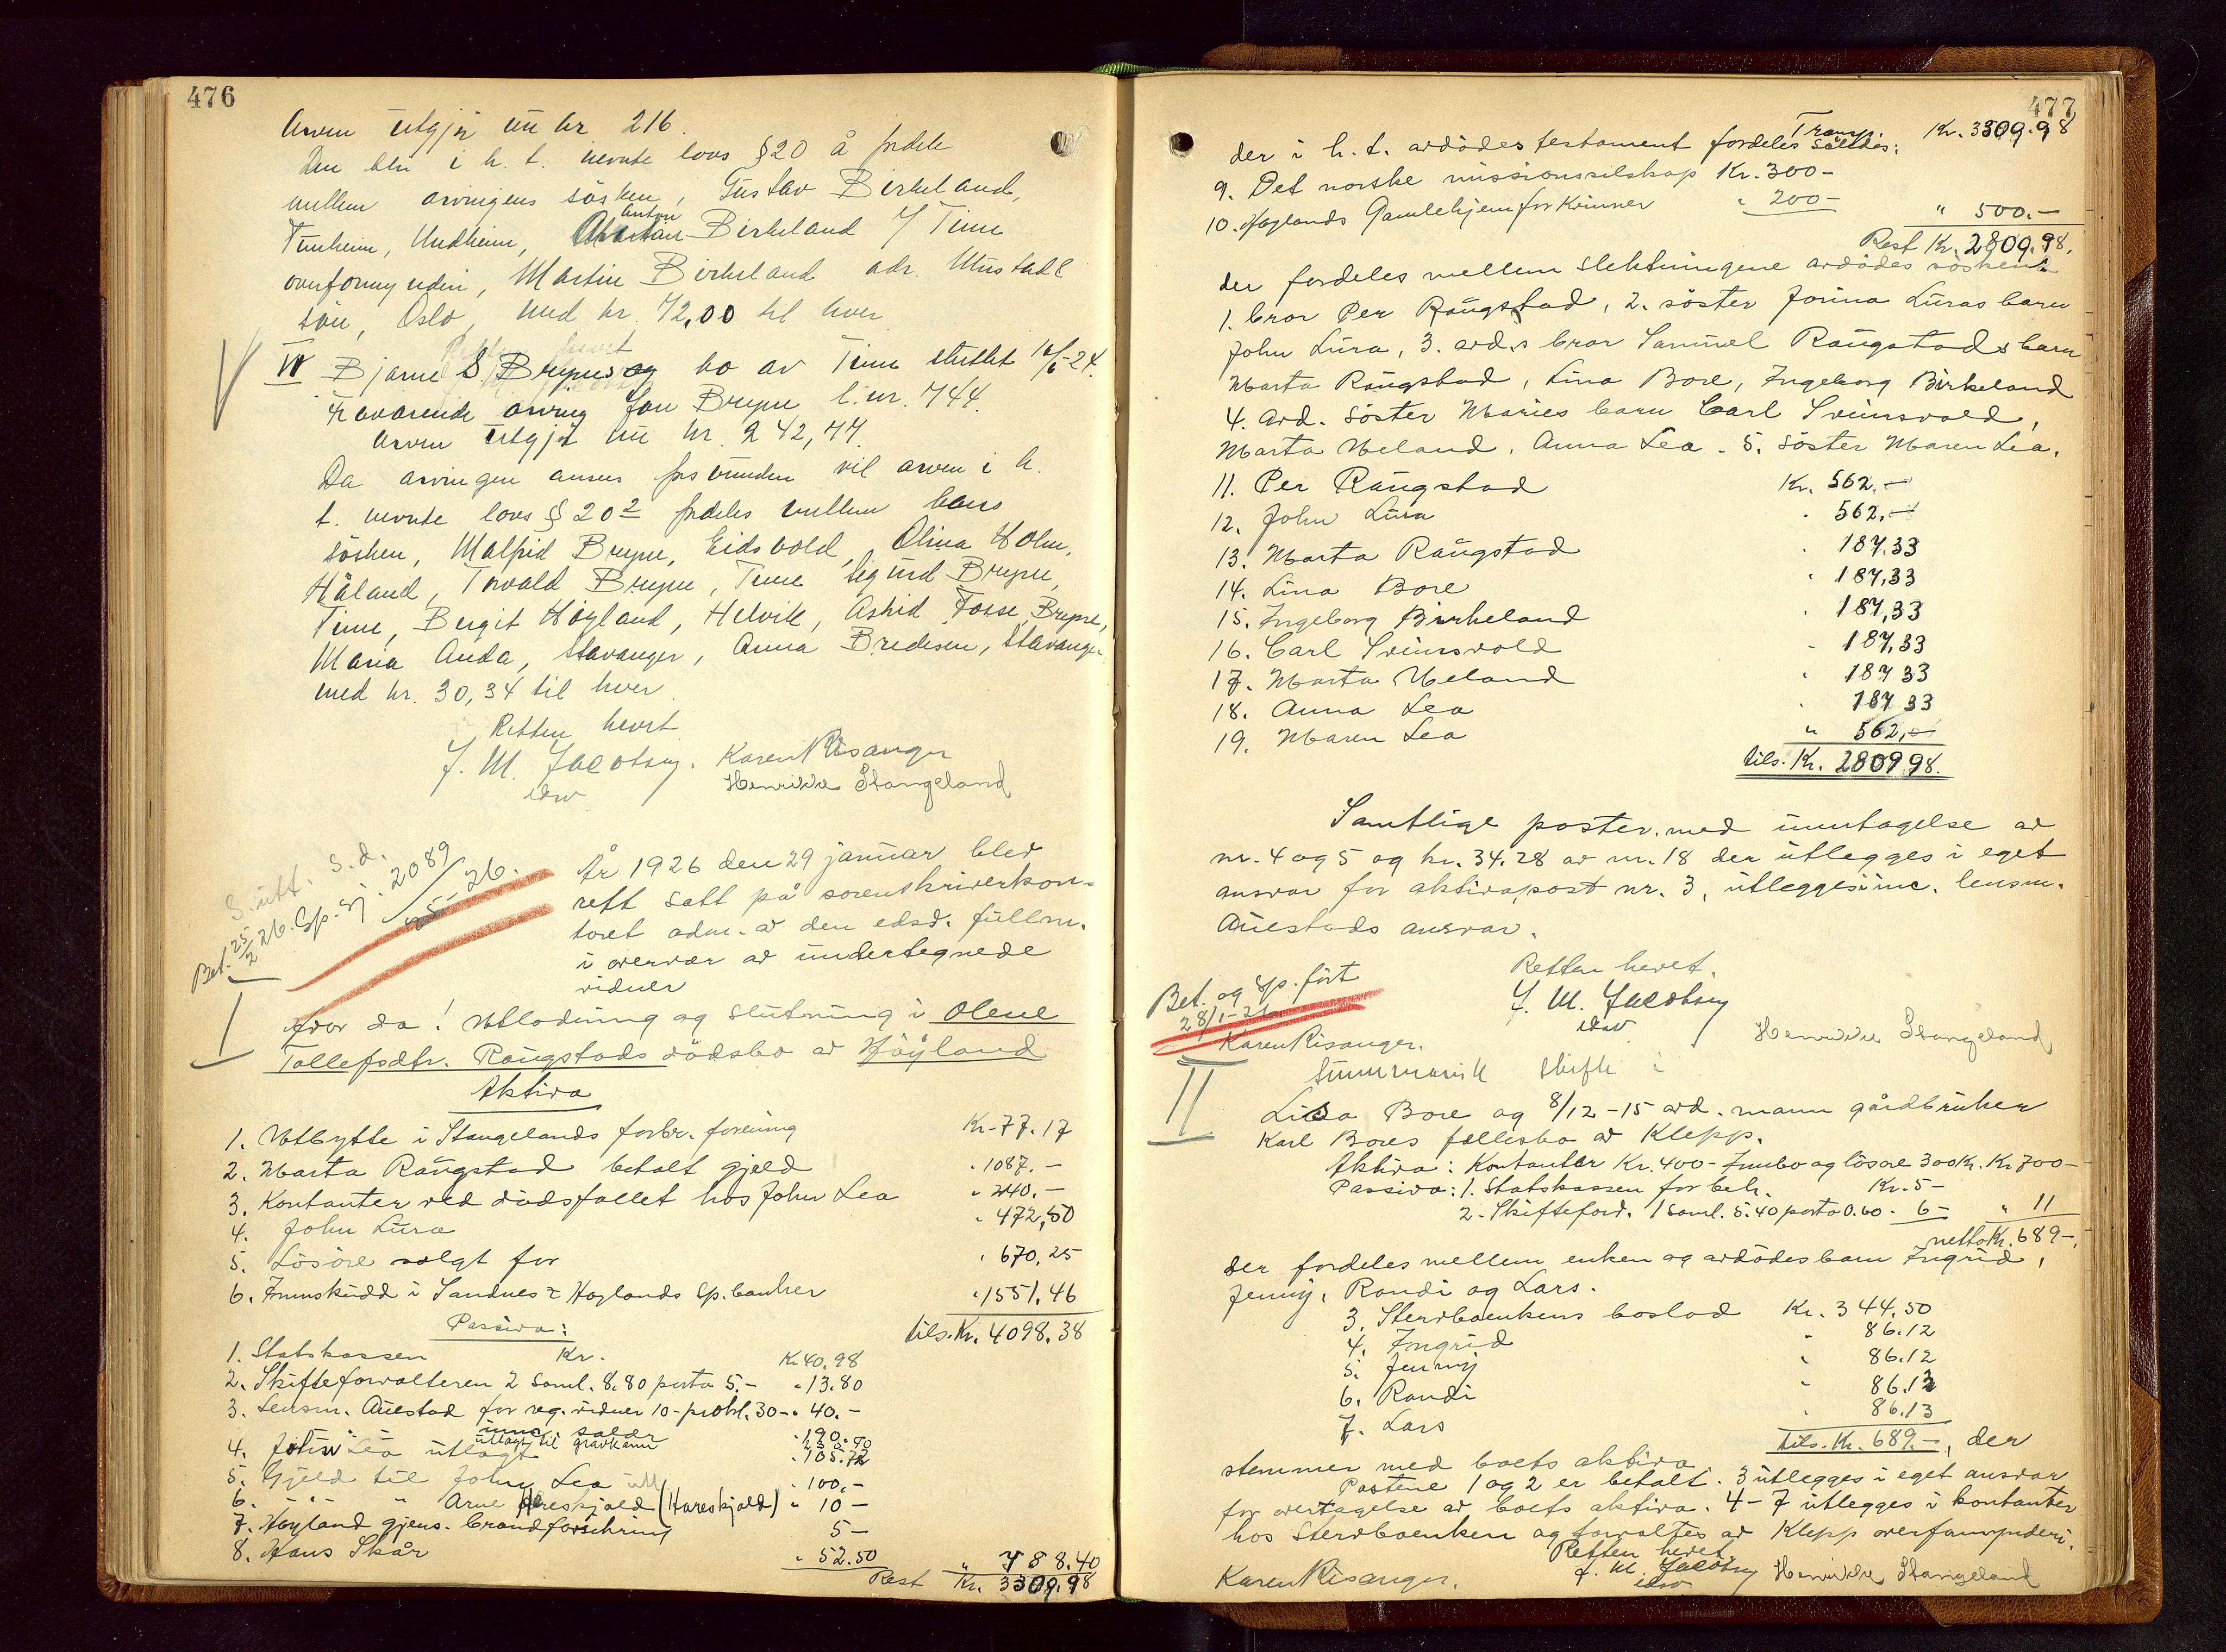 476
Arven utgjør nu kr 216.
Den blir i h. t. nevnte lovs § 20 å fordele
mellem arvingens søsken, Gustav Birkeland,
Tunheim, Undheim, Anton Birkeland i/ Time
overformynderi, Martin Birkeland adr. Mustad &
søn, Oslo, med kr. 72,00 til hver
IV Bjarne S Brynes og bo av Time sluttet 10/6-24.
Fraværende arving Jon Bryne l.nr. 744.
Arven utgjør nu kr. 242,77.
Da arvingen anses forsvunden vil arven i h.
t. nevnte lovs § 20 2 fordeles mellem hans
søsken, Malfrid Bryne, Eidsvold, Olina Holm,
Håland, Torvald Bryne, Time Sigurd Bryne,
Time, Bergit Høyland, Helvik, Astrid Fosse, Bryne,
Maria Anda, Stavanger, Anna Bredesen, Stavanger
med kr. 30,34 til hver.
Retten hevet
J. M. Jacobsen. Karen Risanger
edsv. Henrikke Stangeland
S. utt. s. d.
Bet. 25/2 26. Sp. sj. 2089
25 26.
År 1926 den 29 januar blev
rett satt på sorenskriverkon-
toret adm. av den edsd. fullm.
i overvær av undertegnede
vidner
I
Hvor da! Utlodning og slutning i Olene
Tollefsdtr. Raugstads dødsbo av Höyland
Aktiva
1. Utbytte i Stangelands forbr. forening Kr. 77.17
2. Marta Raugstad betalt gjeld " 1087.-
3. Kontanter ved dødsfallet hos John Lea " 240.-
4. John Lura " 472,50
5. Løsøre solgt for " 670,25
6. Innskudd i Sandnes & Høylands Sp.banker " 1551,46
Passiva: tils. Kr. 4098.38
1. Statskassen Kr. Kr 40.98
2. Skifteforvalteren 2 saml. 8.80 porto 5.- " 13.80
3. Lensm. Auestad for reg. vidner 10- prokl. 30- " 40.-
4. John Lea utlagt til gravkarm " 105.72
5. Gjeld til John Lea " 100,-
6. " " " Arne Hereskjold (Hareskjold) " 10 -
7. Høyland gjens. brandforsikring 5 -
8. Hans Skår " 52.50 " 788.40
Rest Kr. 3309.98
477
Transp. Kr. 3309.98
der i h. t. avdødes testament fordeles således:
9. Det norske missionsselskap Kr. 300-
10. Høylands Gamlehjem for kvinner " 200- " 500.-
Rest Kr. 2809.98.
der fordeles mellem slektningene avdødes søsken:
1. bror Per Raugstad, 2. søster Jorina Luras barn
John Lura, 3. avd.s bror Samuel Raugstads barn
Marta Raugstad, Lina Bore, Ingeborg Birkeland
4. avd. søster Maries barn Carl Sviensvold,
Marta Meland, Anna Lea. 5. søster Maren Lea.
11. Per Raugstad Kr. 562.-
12. John Lura " 562,-
13. Marta Raugstad " 187.33
14. Lina Bore " 187,33
15. Ingeborg Birkeland " 187,33
16. Carl Sviensvold " 187,33
17. Marta Meland " 187 33
18. Anna Lea " 187 33
19. Maren Lea " 562,-
tils. Kr. 2809 98.
Samtlige poster med unntagelse av
nr. 4 og 5 og kr. 34.28 av nr. 18 der utlegges i eget
ansvar for aktivapost nr. 3, utlegges i inc. lensm.
Auestads ansvar.
Retten hevet.
Bet. og sp. ført
28/1-26
J. M. Jacobsen
edsv.
Karen Risanger. Henrikke Stangeland
II
Summarisk skifte i
Lisa Bore og 8/12-15 avd. mann gårdbruker
Karl Bores fellesbo av Klepp.
Aktiva: Kontanter Kr. 400- Innbo og løsøre 300 Kr. Kr 700-
Passiva: 1. Statskassen for beh. Kr. 5-
2. Skifteforv. 1 saml. 5.40 porto 0.60 - 6- " 11
netto Kr. 689-,
der fordeles mellem enken og avdødes barn Ingrid,
Jenny, Randi og Lars.
3. Stervboenkens boslod Kr. 344,50
4. Ingrid " 86.12
5. Jenny " 86.12
6. Randi " 86.13
7. Lars " 86.13
tils. Kr. 689.-, der
stemmer med boets aktiva.
Postene 1 og 2 er betalt. 3 utlegges i eget ansvar
for overtagelse av boets aktiva. 4-7 utlegges i kontanter
hos stervboenken og forvaltes av Klepp overformynderi.
Retten hevet
J. M. Jacobsen
edsv
Karen Risanger. Henrikke Stangeland